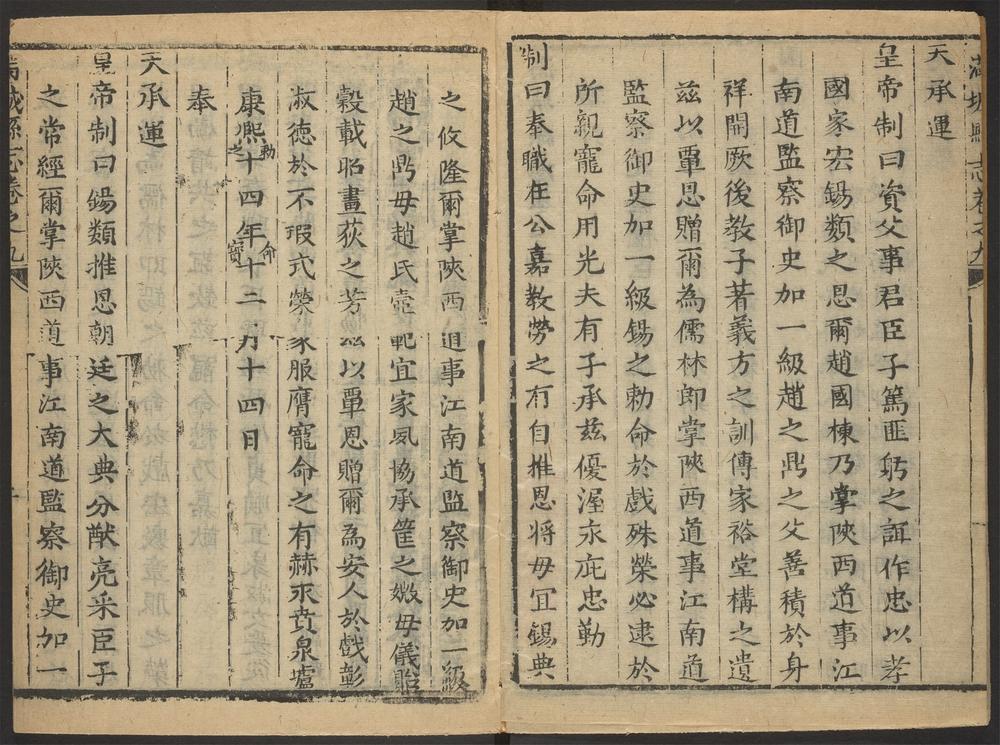 滿城縣志卷之九
天承運
皇帝制曰資父事君臣子篤匪躬之誼作忠以孝
國家宏錫類之恩爾趙國棟乃掌陝西道事江
南道監察御史加一級趙之鼎之父善積於身
祥開厥後教子著義方之訓傳家裕堂構之遺
茲以覃恩贈爾為儒林郎掌陝西道事江南道
監察御史加一級錫之勅命於戲殊榮必逮於
所親寵命用光夫有子承茲優渥永庇忠勤
制曰奉職在公嘉教勞之有自推恩將母宜錫典
之攸隆爾掌陝西道事江南道監察御史加一級
趙之鼎母趙氏壼範宜家夙協承筐之媺母儀貽
穀載昭畫荻之芳茲以覃恩贈爾為安人於戲彰
淑德於不瑕式榮象服膺寵命之有赫永賁泉壚
康熙十四年十二月十四日
勅命
之寶
奉
天承運
皇帝制曰錫類推恩朝廷之大典分猷亮采臣子
之常經爾掌陝西道事江南道監察御史加一
滿城縣志卷之九